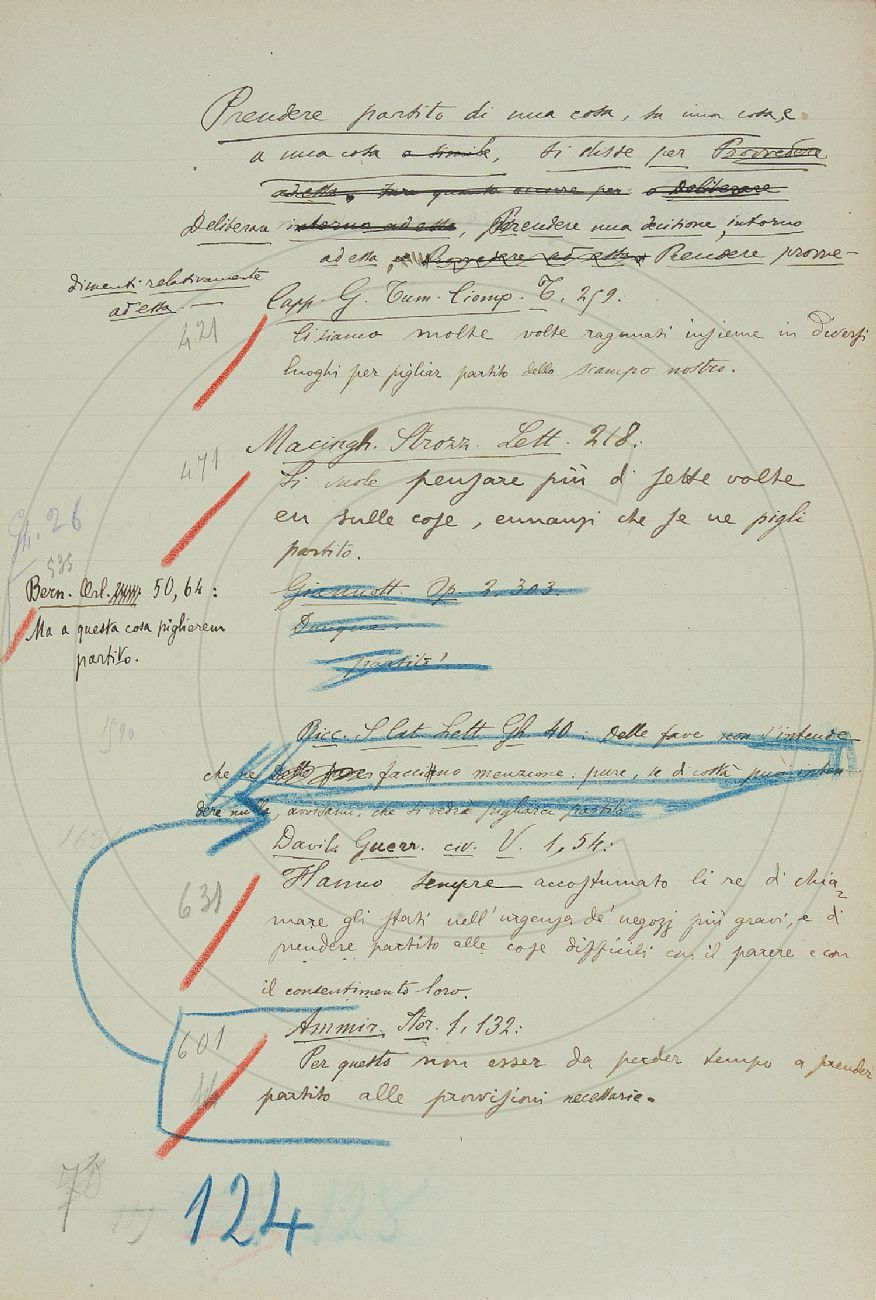 Prendere partito di una cosa, su una cosa, e
a una cosa o simile, si disse per Provvedere
ad essa, fare quanto occorre per o Deliberare
Deliberare intorno ad essa, Prendere una decisione intorno
ad essa, Provvedere ad essa Prendere provve-
dimenti relativamente
ad essa. —
Capp. G. Tum. Ciomp. T. 259:
421
Ci siamo molte volte ragunati insieme in diversi
luoghi per pigliar partito dello scampo nostro.
Macingh. Strozz. Lett. 218:
471
Si vuole pensare più di sette volte
en sulle cose, ennanzi che se ne pigli
partito.
Gh. 26
535
Bern. Orl. 50, 64:
Ma a questa cosa piglierem
partito.
Giannott Op. 2, 303.
Dunque
partito!
1590
Ricc. S Cat. Lett Gh 40: Delle fave non s'intende
che ne facciano menzione: pure, se di costà puoi inten
dere nulla, avvisami, che si vedrà pigliarci partito
163
Davila Guerr. civ. V. 1, 54:
631
Hanno sempre accostumato li re di chia-
mare gli stati nell'urgenza de' negozj più gravi, e di
prendere partito alle cose difficili con il parere e con
il consentimento loro.
601
Ammir. Stor. 1, 132:
Per questo non esser da perder tempo a prender
partito alle provvisioni necessarie.
44
78
119
124 128